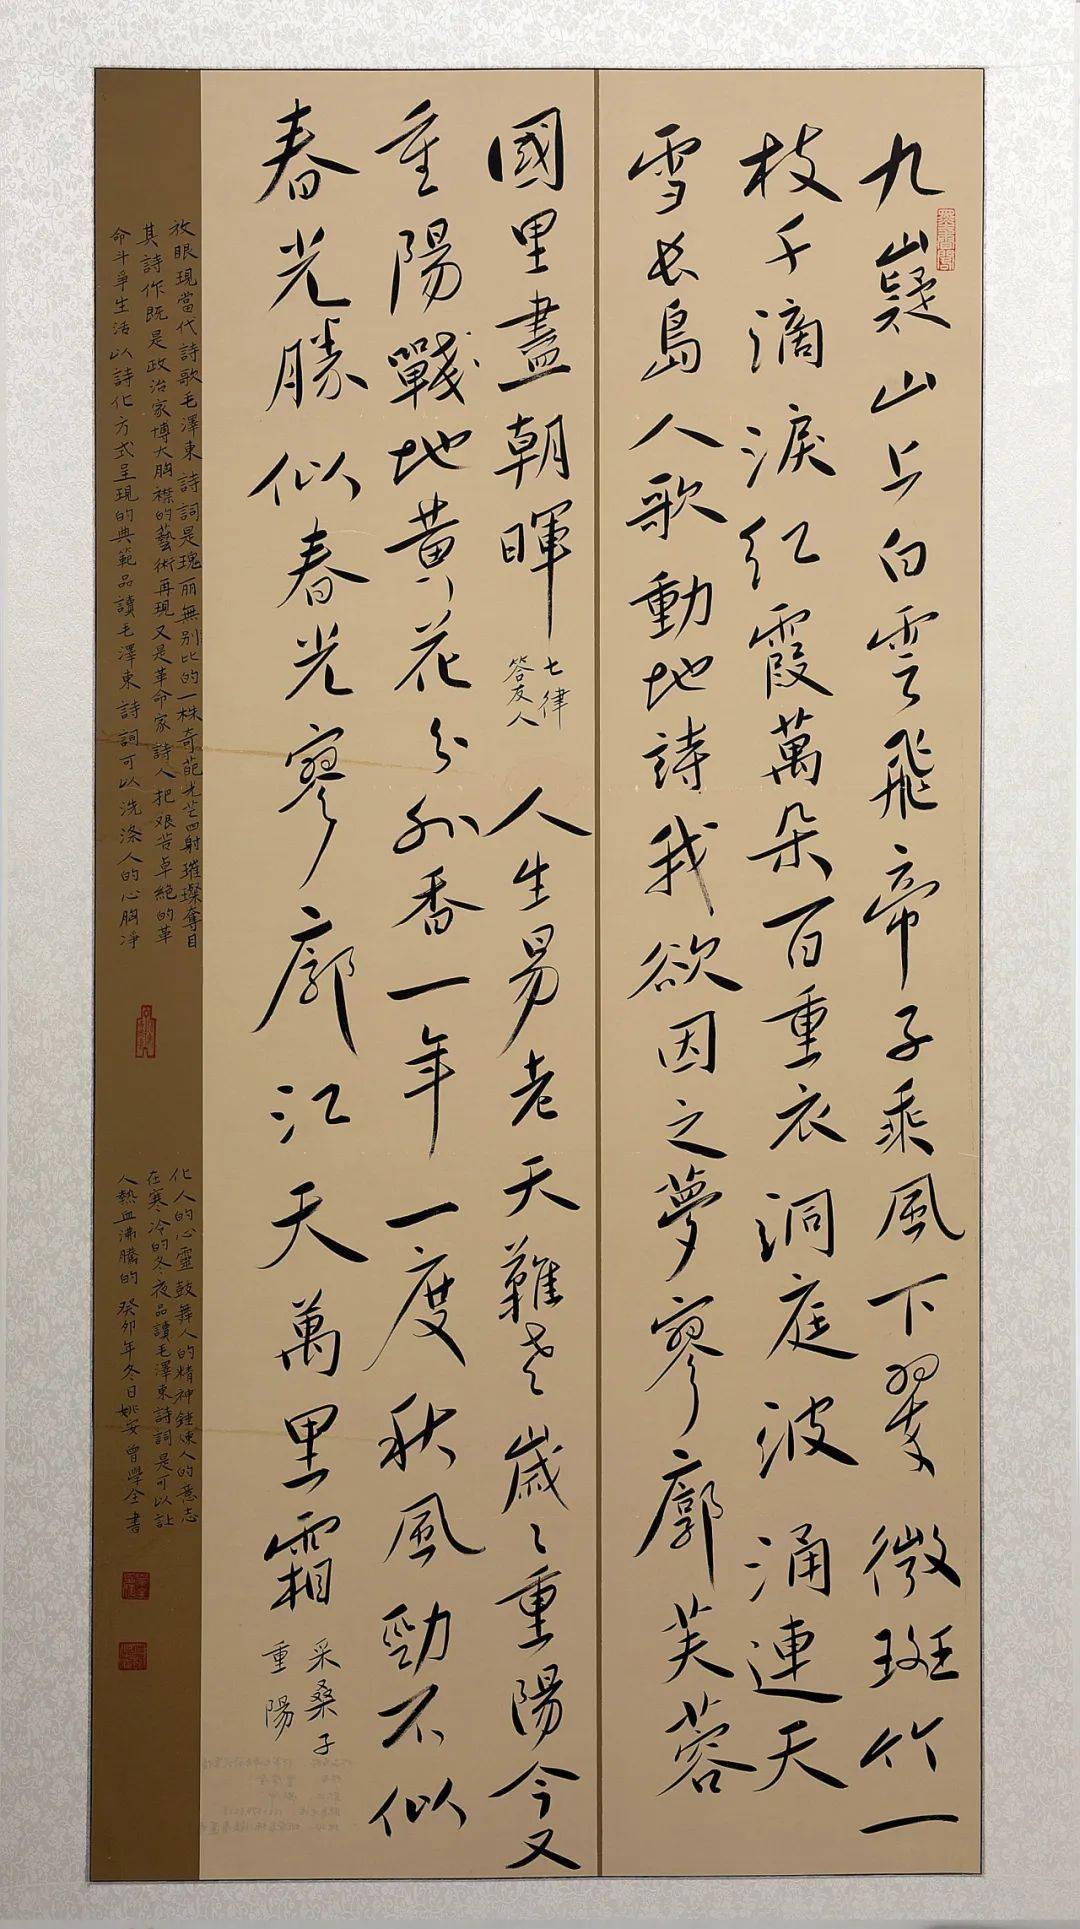 九嶷山上白雲飛帝子乘風下翠微斑竹一
枝千滴淚紅霞萬朵百重衣洞庭波涌連天
雪長島人歌動地詩我欲因之夢寥廓芙蓉
國里盡朝暉
七律
答友人
人生易老天難老歲々重陽今又
重陽戰地黄花分外香一年一度秋風勁不似
春光勝似春光寥廓江天萬里霜
采桑子
重陽
放眼現當代詩歌毛澤東詩詞是瑰丽無别比的一株奇葩光芒四射璀璨奪目
其詩作既是政治家博大胸襟的藝術再現又是革命家詩人把艰苦卓絶的革
命斗爭生活以詩化方式呈現的典範品讀毛澤東詩詞可以洗涤人的心胸淨
化人的心靈鼓舞人的精神錘煉人的意志
在寒冷的冬夜品讀毛澤東詩詞是可以让
人熱血沸騰的癸卯年冬日姚安曾學全書